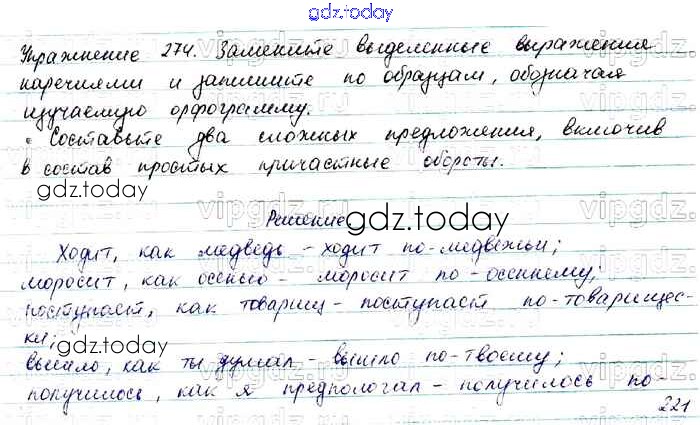 gdz.today
Упражнение 274. Замените выделенные выражения
наречиями и запишите по образцам, обозначая
изучаемую орфограмму.
• Составьте два сложных предложения, включив
в состав простых причастные обороты.
gdz.today
Решение
gdz.today
Ходит, как медведь – ходит по-медвежьи;
моросит, как осенью – моросит по-осеннему;
поступает, как товарищ – поступает по-товарищес-
ки;
gdz.today
вышло, как ты думал – вышло по-твоему;
получилось, как я предпологал – получилось по-
221